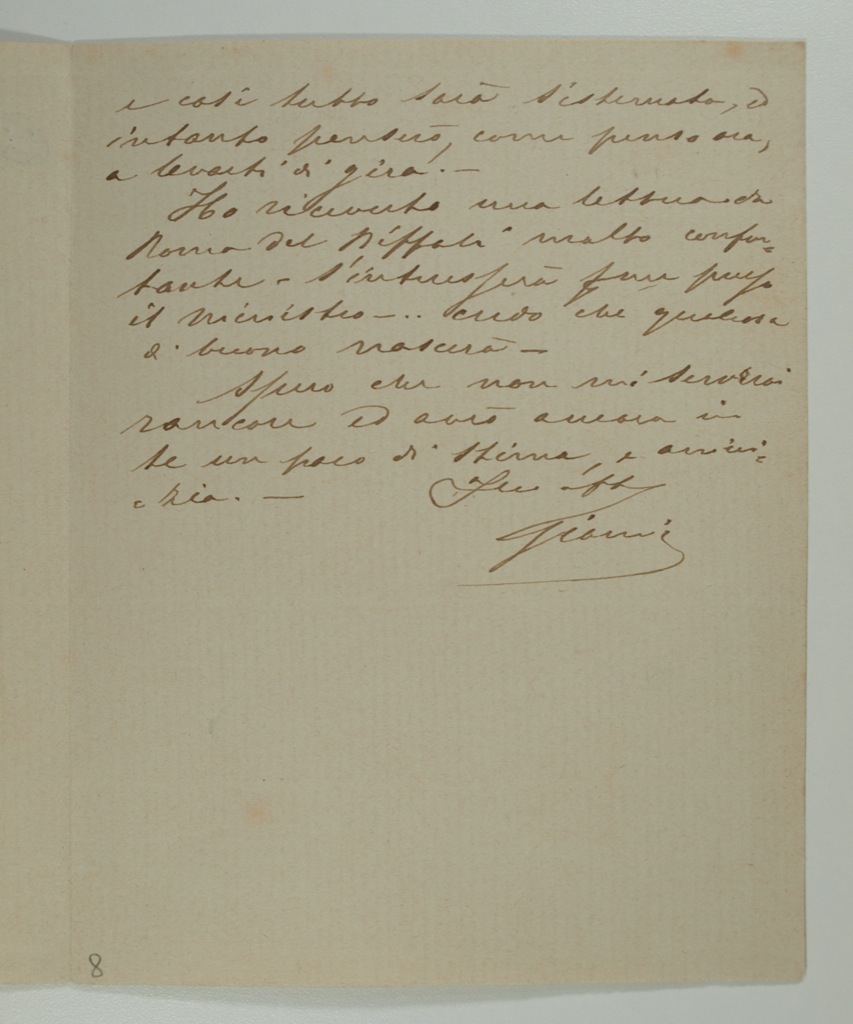 e così tutto sarà sistemato, ed
intanto penserò, come penso ora,
a levarti di giro. —
Ho ricevuto una lettera da
Roma del Biffoli molto confor=
tante — s'interesserà presso
il ministro — .. credo che qualcosa
di buono nascerà —
Spero che non mi serverai
rancore ed avrò ancora in
te un poco di stima, e amici=
=zia. — Tuo aff
Gianni
8